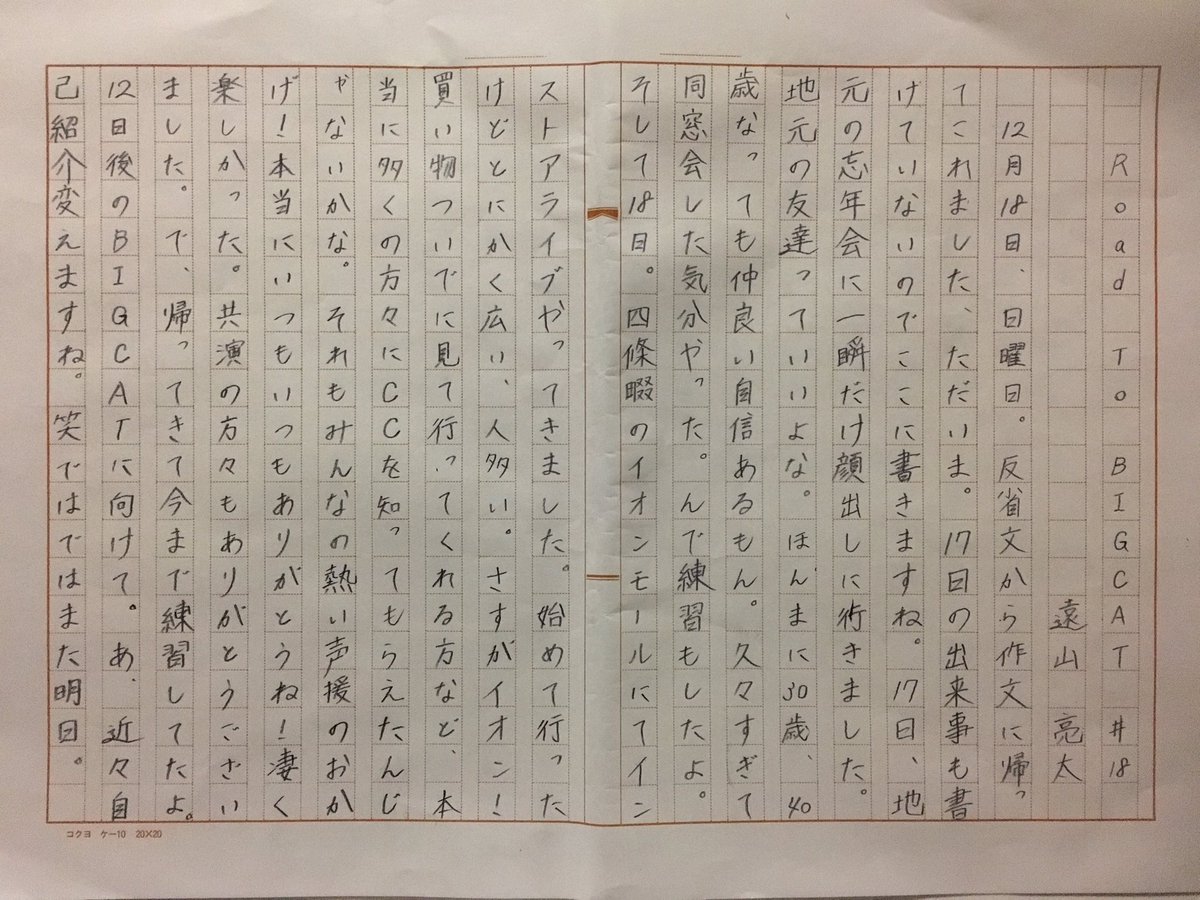 Road To BIGCAT #18
遠山 亮太
12月18日、日曜日。反省文から作文に帰っ
てこれました、ただいま。17日の出来事も書
けていないのでここに書きますね。17日、地
元の忘年会に一瞬だけ顔出しに術きました。
地元の友達っていいよな。ほんまに30歳、40
歳なっても仲良い自信あるもん。久々すぎて
同窓会した気分やった。んで練習もしたよ。
そして18日。四條畷のイオンモールにてイン
ストアライブやってきました。始めて行った
けどとにかく広い、人多い。さすがイオン!
買い物ついでに見て行ってくれる方など、本
当に多くの方々にCCを知ってもらえたんじ
ゃないかな。それもみんなの熱い声援のおか
げ!本当にいつもいつもありがとうね!凄く
楽しかった。共演の方々もありがとうござい
ました。で、帰ってきて今まで練習してたよ。
12日後のBIGCATに向けて。あ、近々自
己紹介変えますね。笑ではではまた明日。
コクヨ ケー10 20×20